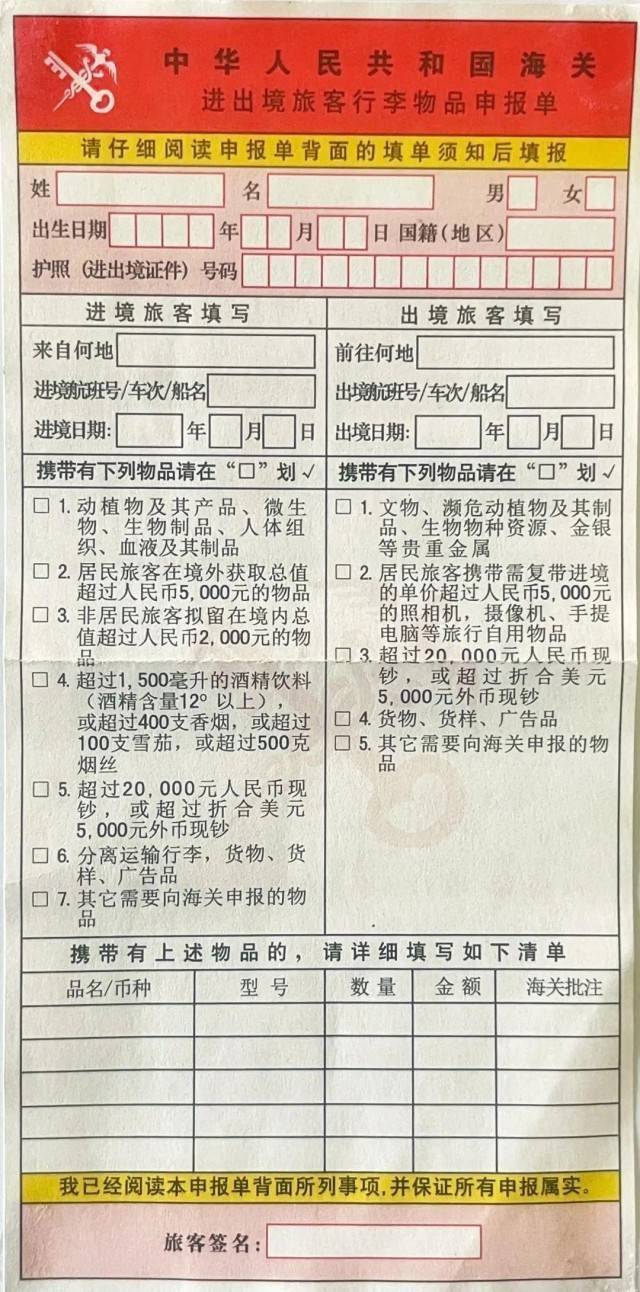 中华人民共和国海关
进出境旅客行李物品申报单
请仔细阅读申报单背面的填单须知后填报
姓 名 男 女
出生日期 年 月 日 国籍(地区)
护照（进出境证件）号码
进境旅客填写
来自何地
进境航班号/车次/船名
进境日期: 年 月 日
携带有下列物品请在“□”划√
□ 1. 动植物及其产品、微生
物、生物制品、人体组
织、血液及其制品
□ 2. 居民旅客在境外获取总值
超过人民币5,000元的物品
□ 3. 非居民旅客拟留在境内总
值超过人民币2,000元的物
品
□ 4. 超过1,500毫升的酒精饮料
（酒精含量12°以上），
或超过400支香烟，或超过
100支雪茄，或超过500克
烟丝
□ 5. 超过20,000元人民币现
钞，或超过折合美元
5,000元外币现钞
□ 6. 分离运输行李，货物、货
样、广告品
□ 7. 其它需要向海关申报的物
品
出境旅客填写
前往何地
出境航班号/车次/船名
出境日期: 年 月 日
携带有下列物品请在“□”划√
□ 1. 文物、濒危动植物及其制
品、生物物种资源、金银
等贵重金属
□ 2. 居民旅客携带需复带进境
的单价超过人民币5,000元
的照相机，摄像机、手提
电脑等旅行自用物品
□ 3. 超过20,000元人民币现
钞，或超过折合美元
5,000元外币现钞
□ 4. 货物、货样、广告品
□ 5. 其它需要向海关申报的物
品
携带有上述物品的，请详细填写如下清单
品名/币种 型号 数量 金额 海关批注
我已经阅读本申报单背面所列事项,并保证所有申报属实。
旅客签名: